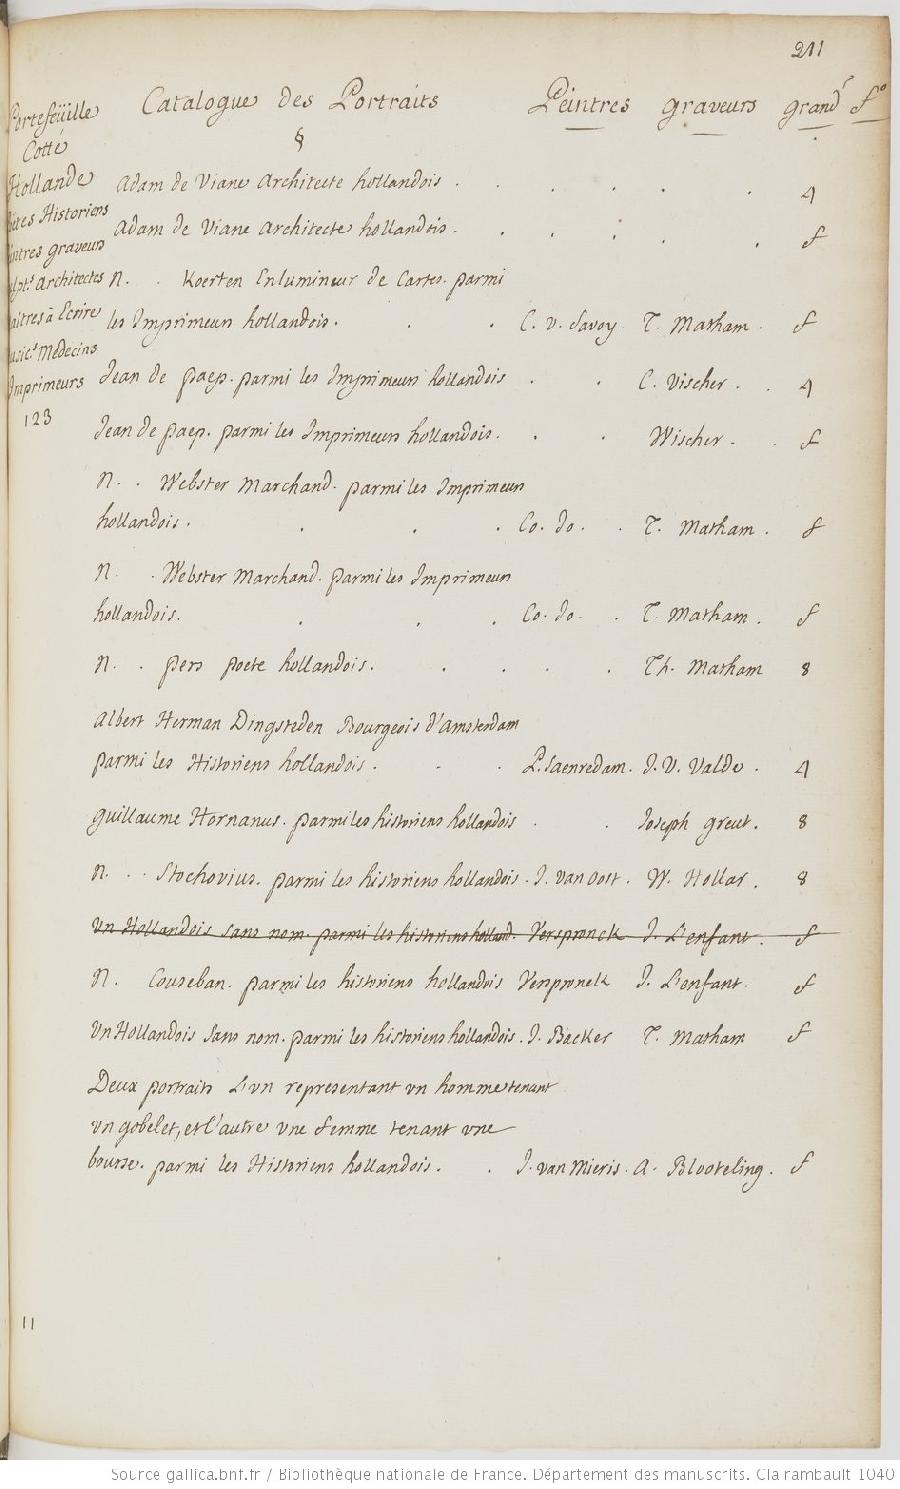 211
Catalogue des Portraits Peintres graveurs grandr fo
§
Portefeüille
Cotté
Hollande
Poëtes Historiens
Peintres graveurs
Sculpts Architectes
Maitres à Ecrire
Musics Medecins
Imprimeurs
123
Adam de Viane Architecte hollandois . . . . . . 4
Adam de Viane Architecte hollandois . . . . . . f
N. . Koerten Enlumineur de Cartes. parmi
les Imprimeurs hollandois. . . C. v. Savoy. T. Matham. f
Jean de paep. parmi les Imprimeurs hollandois . . C. Vischer . . 4
Jean de paep. parmi les Imprimeurs hollandois. . . Wischer . . f
N. . Webster Marchand. parmi les Imprimeurs
hollandois. . . . Co. do. . T. Matham . f
N. . Webster Marchand. parmi les Imprimeurs
hollandois. . . . Co. do. . T. Matham . f
N. . pers poete hollandois. . . . . Th. Matham 8
Albert Herman Dingsteden Bourgeois d'Amsterdam
parmi les Historiens hollandois. . . P. Saenredam. J. V. Valde . 4
guillaume Hornanus. parmi les historiens hollandois . . Joseph greut. 8
N. . . Stochovius. parmi les historiens hollandois. J. Van Oost. W. Hollar. 8
Un Hollandois sans nom. parmi les historiens holland. Verspronck J. L'enfant. f
N. Couseban. parmi les historiens hollandois Verspronck J. L'enfant. f
Un Hollandois sans nom. parmi les historiens hollandois. J. Backer T. Matham f
Deux portraits L'un representant un homme tenant
un gobelet, et l'autre une femme tenant une
bourse. parmi les Historiens hollandois. . J. van Mieris. A. Blooteling. f
11
Source gallica.bnf.fr / Bibliothèque nationale de France. Département des manuscrits. Clairambault 1040